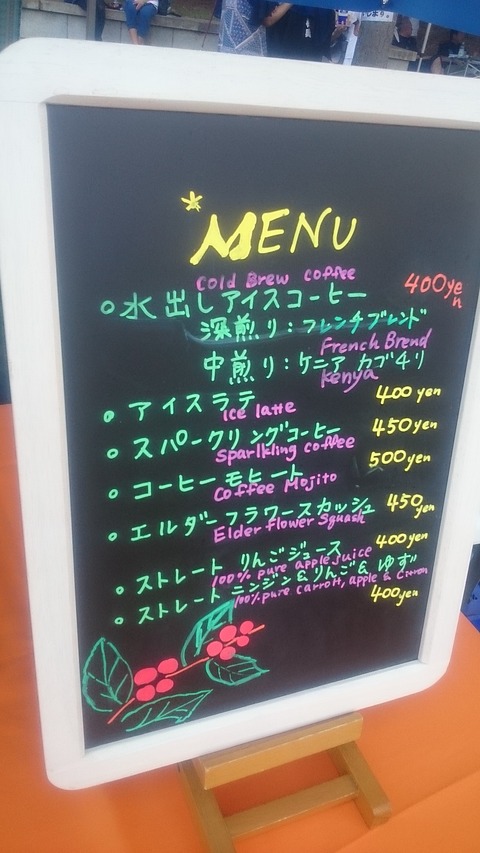 *MENU
Cold Brew coffee
400yen
○水出しアイスコーヒー
深煎り:フレンチブレンド
French Brend
中煎り:ケニア カブチリ
Kenya
○アイスラテ 400 yen
Ice latte
○スパークリングコーヒー 450 yen
Sparlkling coffee
○コーヒーモヒート 500 yen
Coffee Mojito
○エルダーフラワースカッシュ 450 yen
Elder flower Squash
○ストレート りんごジュース 400 yen
100% pure apple juice
○ストレート ニンジン&りんご&ゆず
100% pure carrott, apple & citron
400yen